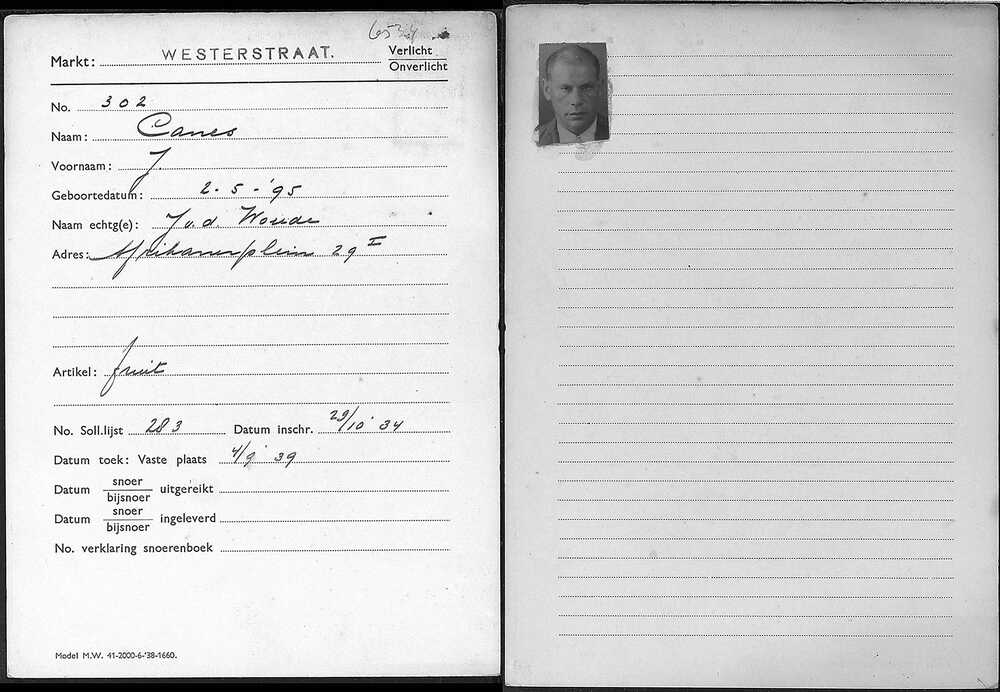 Markt: WESTERSTRAAT. Verlicht
Onverlicht
No. 302
Naam: Canes
Voornaam: J.
Geboortedatum: 2-5-'95
Naam echtg(e): J v.d. Woude
Adres: Afrikanerplein 29 I
Artikel: fruit
No. Soll.lijst 283 Datum inschr. 29/10 '34
Datum toek: Vaste plaats 4/9 '39
Datum snoer uitgereikt
bijsnoer
Datum snoer ingeleverd
bijsnoer
No. verklaring snoerenboek
Model M.W. 41-2000-6-'38-1660.